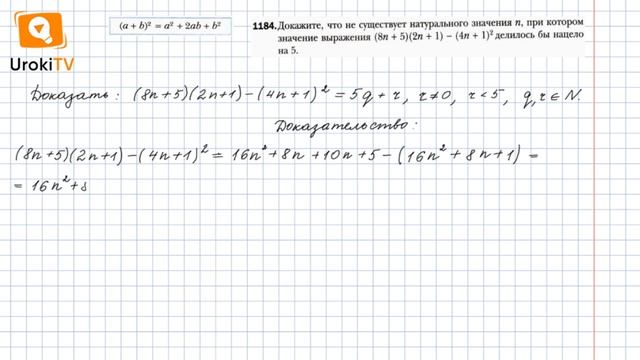 (a + b)² = a² + 2ab + b²
1184. Докажите, что не существует натурального значения n, при котором
значение выражения (8n + 5)(2n + 1) − (4n + 1)² делилось бы нацело
на 5.
UrokiTV
Доказать: (8n+5)(2n+1)−(4n+1)² = 5q + r, r≠0, r<5, q,r∈N.
Доказательство:
(8n+5)(2n+1)−(4n+1)² = 16n² + 8n + 10n + 5 − (16n² + 8n + 1) =
= 16n² + 8